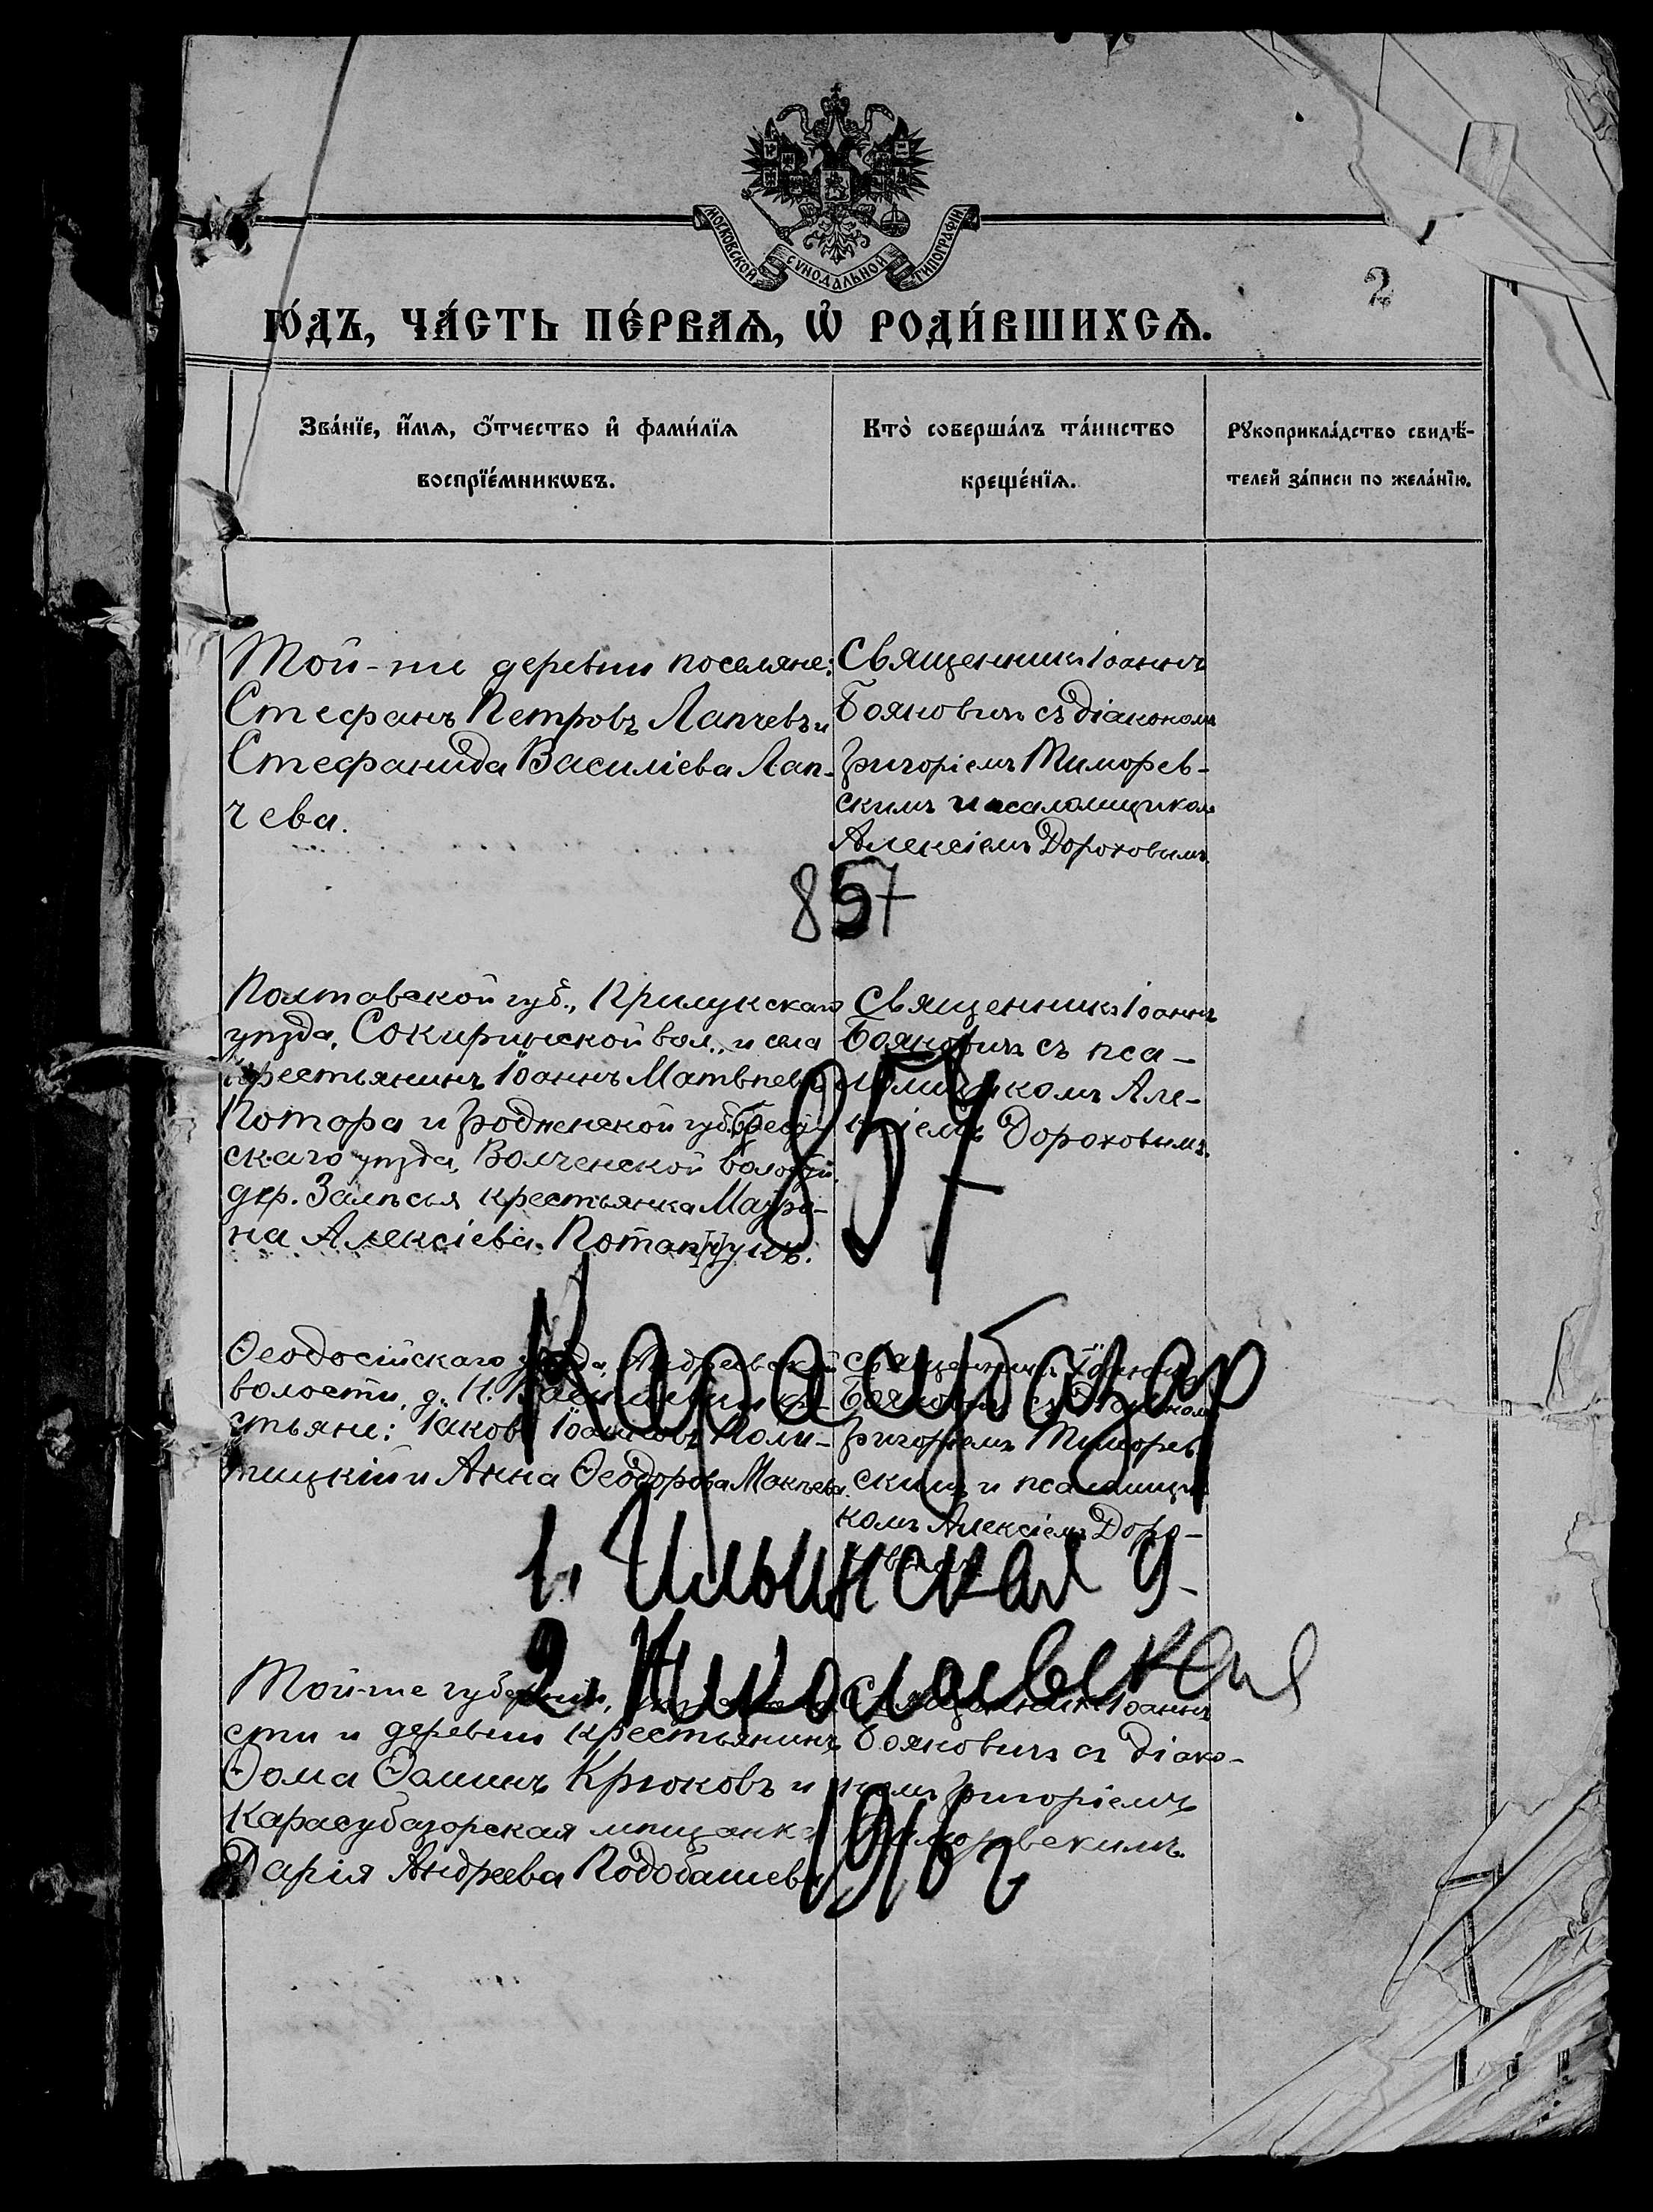 МОСКОВСКОЙ СУНОДАЛЬНОЙ ТИПОГРАФІИ
2
ГО́ДЪ, ЧА́СТЬ ПЕ́РВАѦ, Ѡ РОДИ́ВШИХСѦ.
Зва́нїе, и҆́мѧ, ѻ҆́тчество и҆ фами́лїѧ
воспрїе́мникѡвъ.
Кто̀ соверша́лъ та́инство
креще́нїѧ.
Рꙋкоприкла́дство свидѣ́-
телей за́писи по жела́нїю.
Той-же деревни поселяне:
Стефанъ Петровъ Лапчевъ и
Стефанида Василіева Лап-
чева.
Священникъ Іоаннъ
Бояновичъ съ діакономъ
Григоріемъ Тиморев-
скимъ и псаломщикомъ
Алексіемъ Дороховымъ.
857
Полтавской губ., Прилукскаго
уѣзда, Сокиринской вол., и села
крестьянинъ Іоаннъ Матвѣевъ
Потора и Гродненской губ.
скаго уѣзда, Волченской волости,
дер. Залѣсья крестьянка Матро-
на Алексіева Потапчукъ.
Священникъ Іоаннъ
Бояновичъ съ пса-
ломщикомъ Але-
ксіемъ Дороховымъ.
857
Ѳеодосійскаго уѣзда, Андреевской
волости, д. Н.
стьяне: Іаковъ Іоанновъ Поли-
тицкій и Анна Ѳеодорова
Священникъ Іоаннъ
Бояновичъ съ діакономъ
Григоріемъ Тиморев-
скимъ и псаломщи-
комъ Алексіемъ Доро-
ховымъ.
Карасубазар
1. Ильинская ц.
2. Николаевская
1916 г
Той-же губерніи,
сти и деревни крестьянинъ
Ѳома Ѳоминъ Крюковъ и
Карасубазорская мѣщанка
Дарія Андреева Подобашева
Священникъ Іоаннъ
Бояновичъ съ діако-
номъ Григоріемъ
Тиморевскимъ.